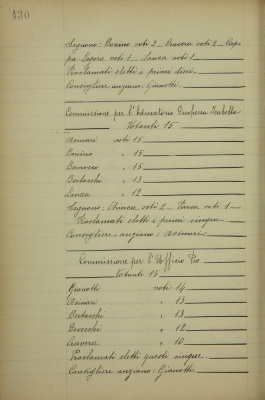 430
Seguono: Bonino voti 2 _ Cravera voti 2 _ Cap
pa-Legora voti 1 _ Lanza voti 1
Proclamati eletti i primi dieci.
Consigliere anziano: Gianotti.
Commissione per l'Educatorio Duchessa Isabella
Votanti 15
Asinari voti 15
Bonino " 15
" 15
Bertacchi " 13
Lanza " 12
Seguono: voti 2 _ voti 1 _
Proclamati eletti i primi cinque.
Consigliere anziano: Asinari.
Commissione per l'Ufficio Pio
Votanti 15
Gianotti voti 14
Asinari " 13
Bertacchi " 13
" 12
Cravera " 10
Proclamati eletti questi cinque.
Consigliere anziano: Gianotti.